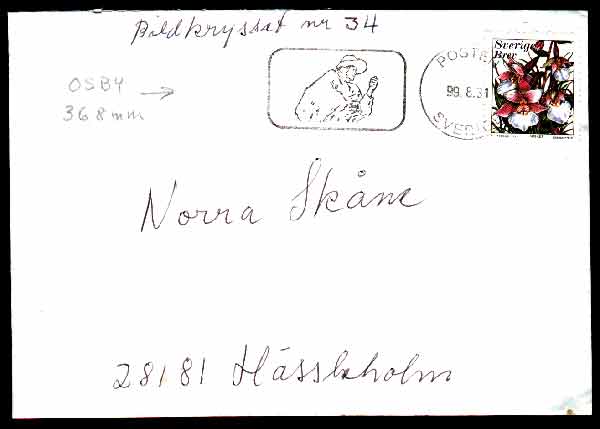 Bildkryssat nr 34
OSBY
368 mm
POSTEN
99.8.31
SVERIGE
Sverige
Brev
Norra Skåne
28181 Hässleholm